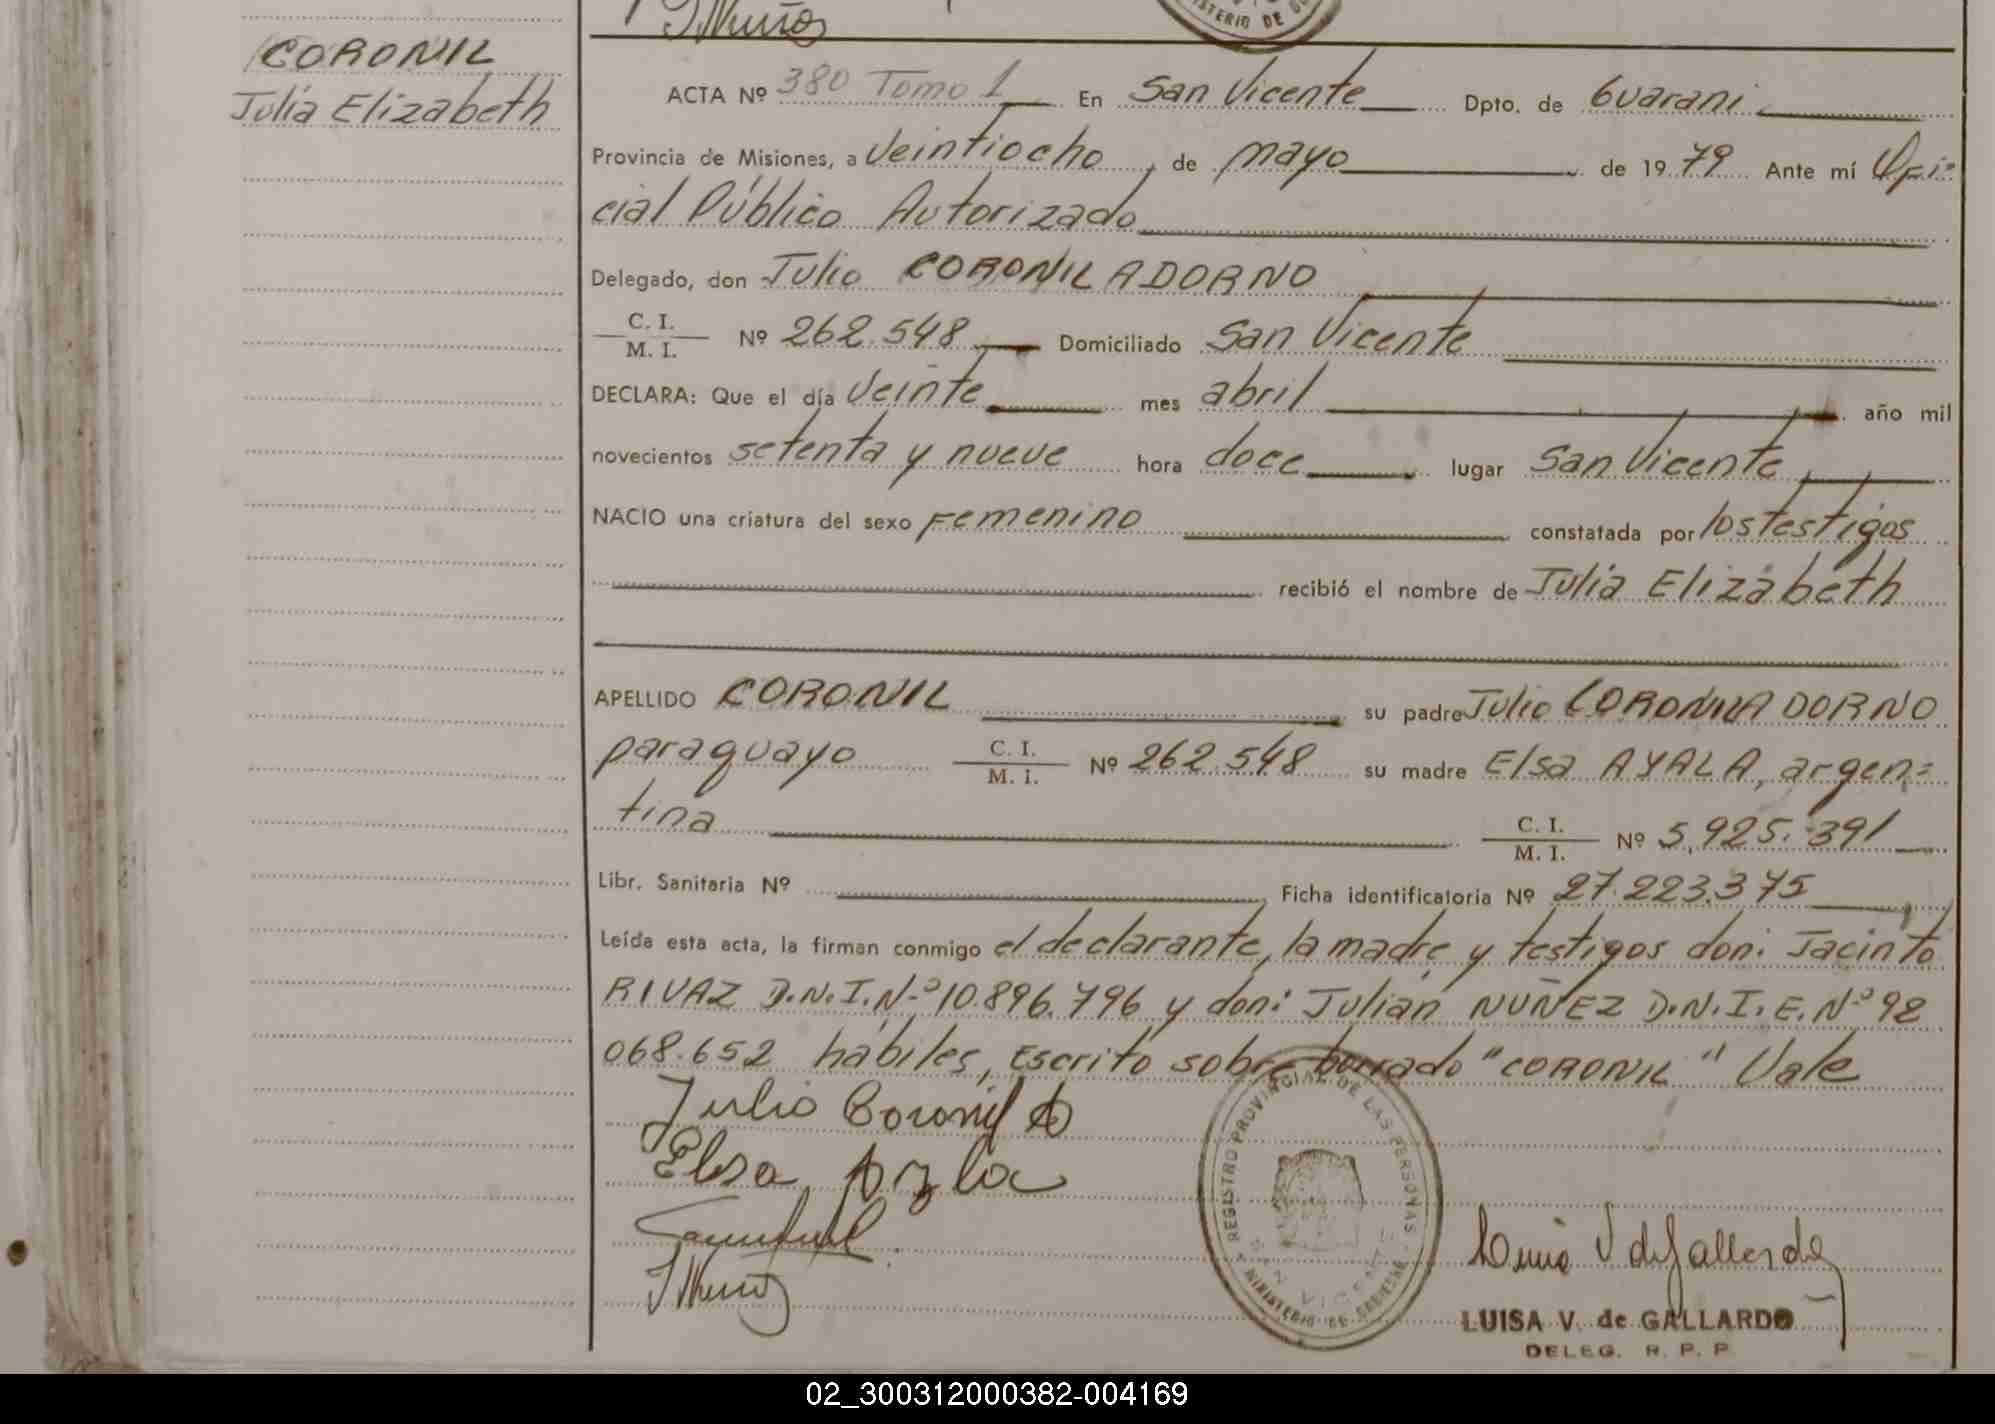 J Nuñez
MINISTERIO DE GO
CORONIL
Julia Elizabeth
ACTA Nº 380 Tomo 1 En San Vicente Dpto. de Guarani
Provincia de Misiones, a veintiocho, de mayo de 1979 Ante mí Ofi=
cial Público Autorizado
Delegado, don Julio CORONIL ADORNO
C. I.
M. I. Nº 262.548 Domiciliado San Vicente
DECLARA: Que el día veinte mes abril año mil
novecientos setenta y nueve hora doce lugar San Vicente
NACIO una criatura del sexo Femenino constatada por los testigos
recibió el nombre de Julia Elizabeth
APELLIDO CORONIL su padre Julio CORONIL ADORNO
paraguayo C. I.
M. I. Nº 262.548 su madre Elsa AYALA, argen=
tina C. I.
M. I. Nº 5.925.391
Libr. Sanitaria Nº Ficha identificatoria Nº 27.223.375
Leída esta acta, la firman conmigo el declarante, la madre y testigos don: Jacinto
RIVAZ D.N.I.Nº 10.896.796 y don: Julián NUÑEZ D.N.I.E.Nº 92
068.652 hábiles, Escrito sobre borrado "CORONIL" Vale
Julio Coronil A
Elsa Ayala
J Nuñez
REGISTRO PROVINCIAL DE LAS PERSONAS
SAN VICENTE
MINISTERIO DE GOBIERNO
Luisa V de Gallardo
LUISA V. de GALLARDO
DELEG. R. P. P.
02_300312000382-004169